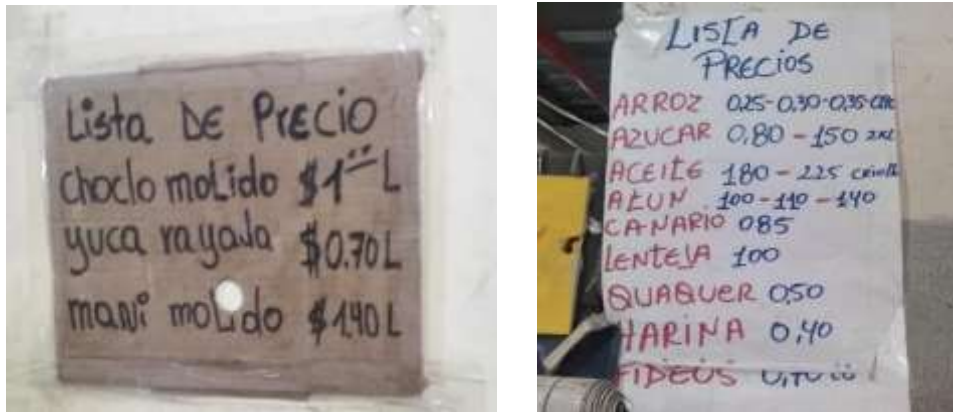 Lista DE PRECIO
choclo moLido $1 L
yuca rayada $0.70 L
mani moLido $1.40 L
LISTA DE
PRECIOS
ARROZ 025-0,30-0,35
AZUCAR 0,80 - 150 2KL
ACEITE 180 - 225
ATUN 100-110-140
CANARIO 085
LENTEJA 100
QUAQUER 0,50
HARINA 0,40
FIDEOS